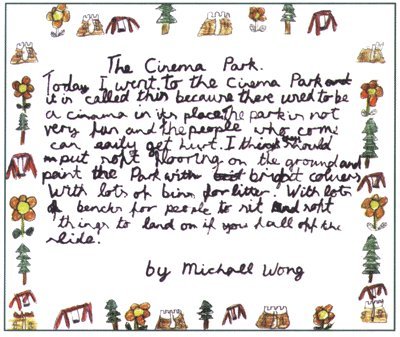 The Cinema Park.
Today I went to the Cinema Park and
it is called this because there used to be
a cinama in its place. The park is not
very fun and the people who come
can easily get hurt. I think should
put soft flooring on the ground and
paint the Park with bright colours
With lots of bins for litter. With lots
of benchs for people to sit and soft
things to land on if you fall off the
slide.
by Michall Wong